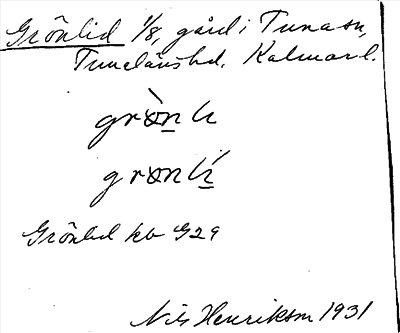 Grönlid 1/8, gård i Tuna sn,
Tunaläns hd. Kalmar l.
grò̱nli
gronlí̱
Grönlid kb G29
Nils Henrikson 1931